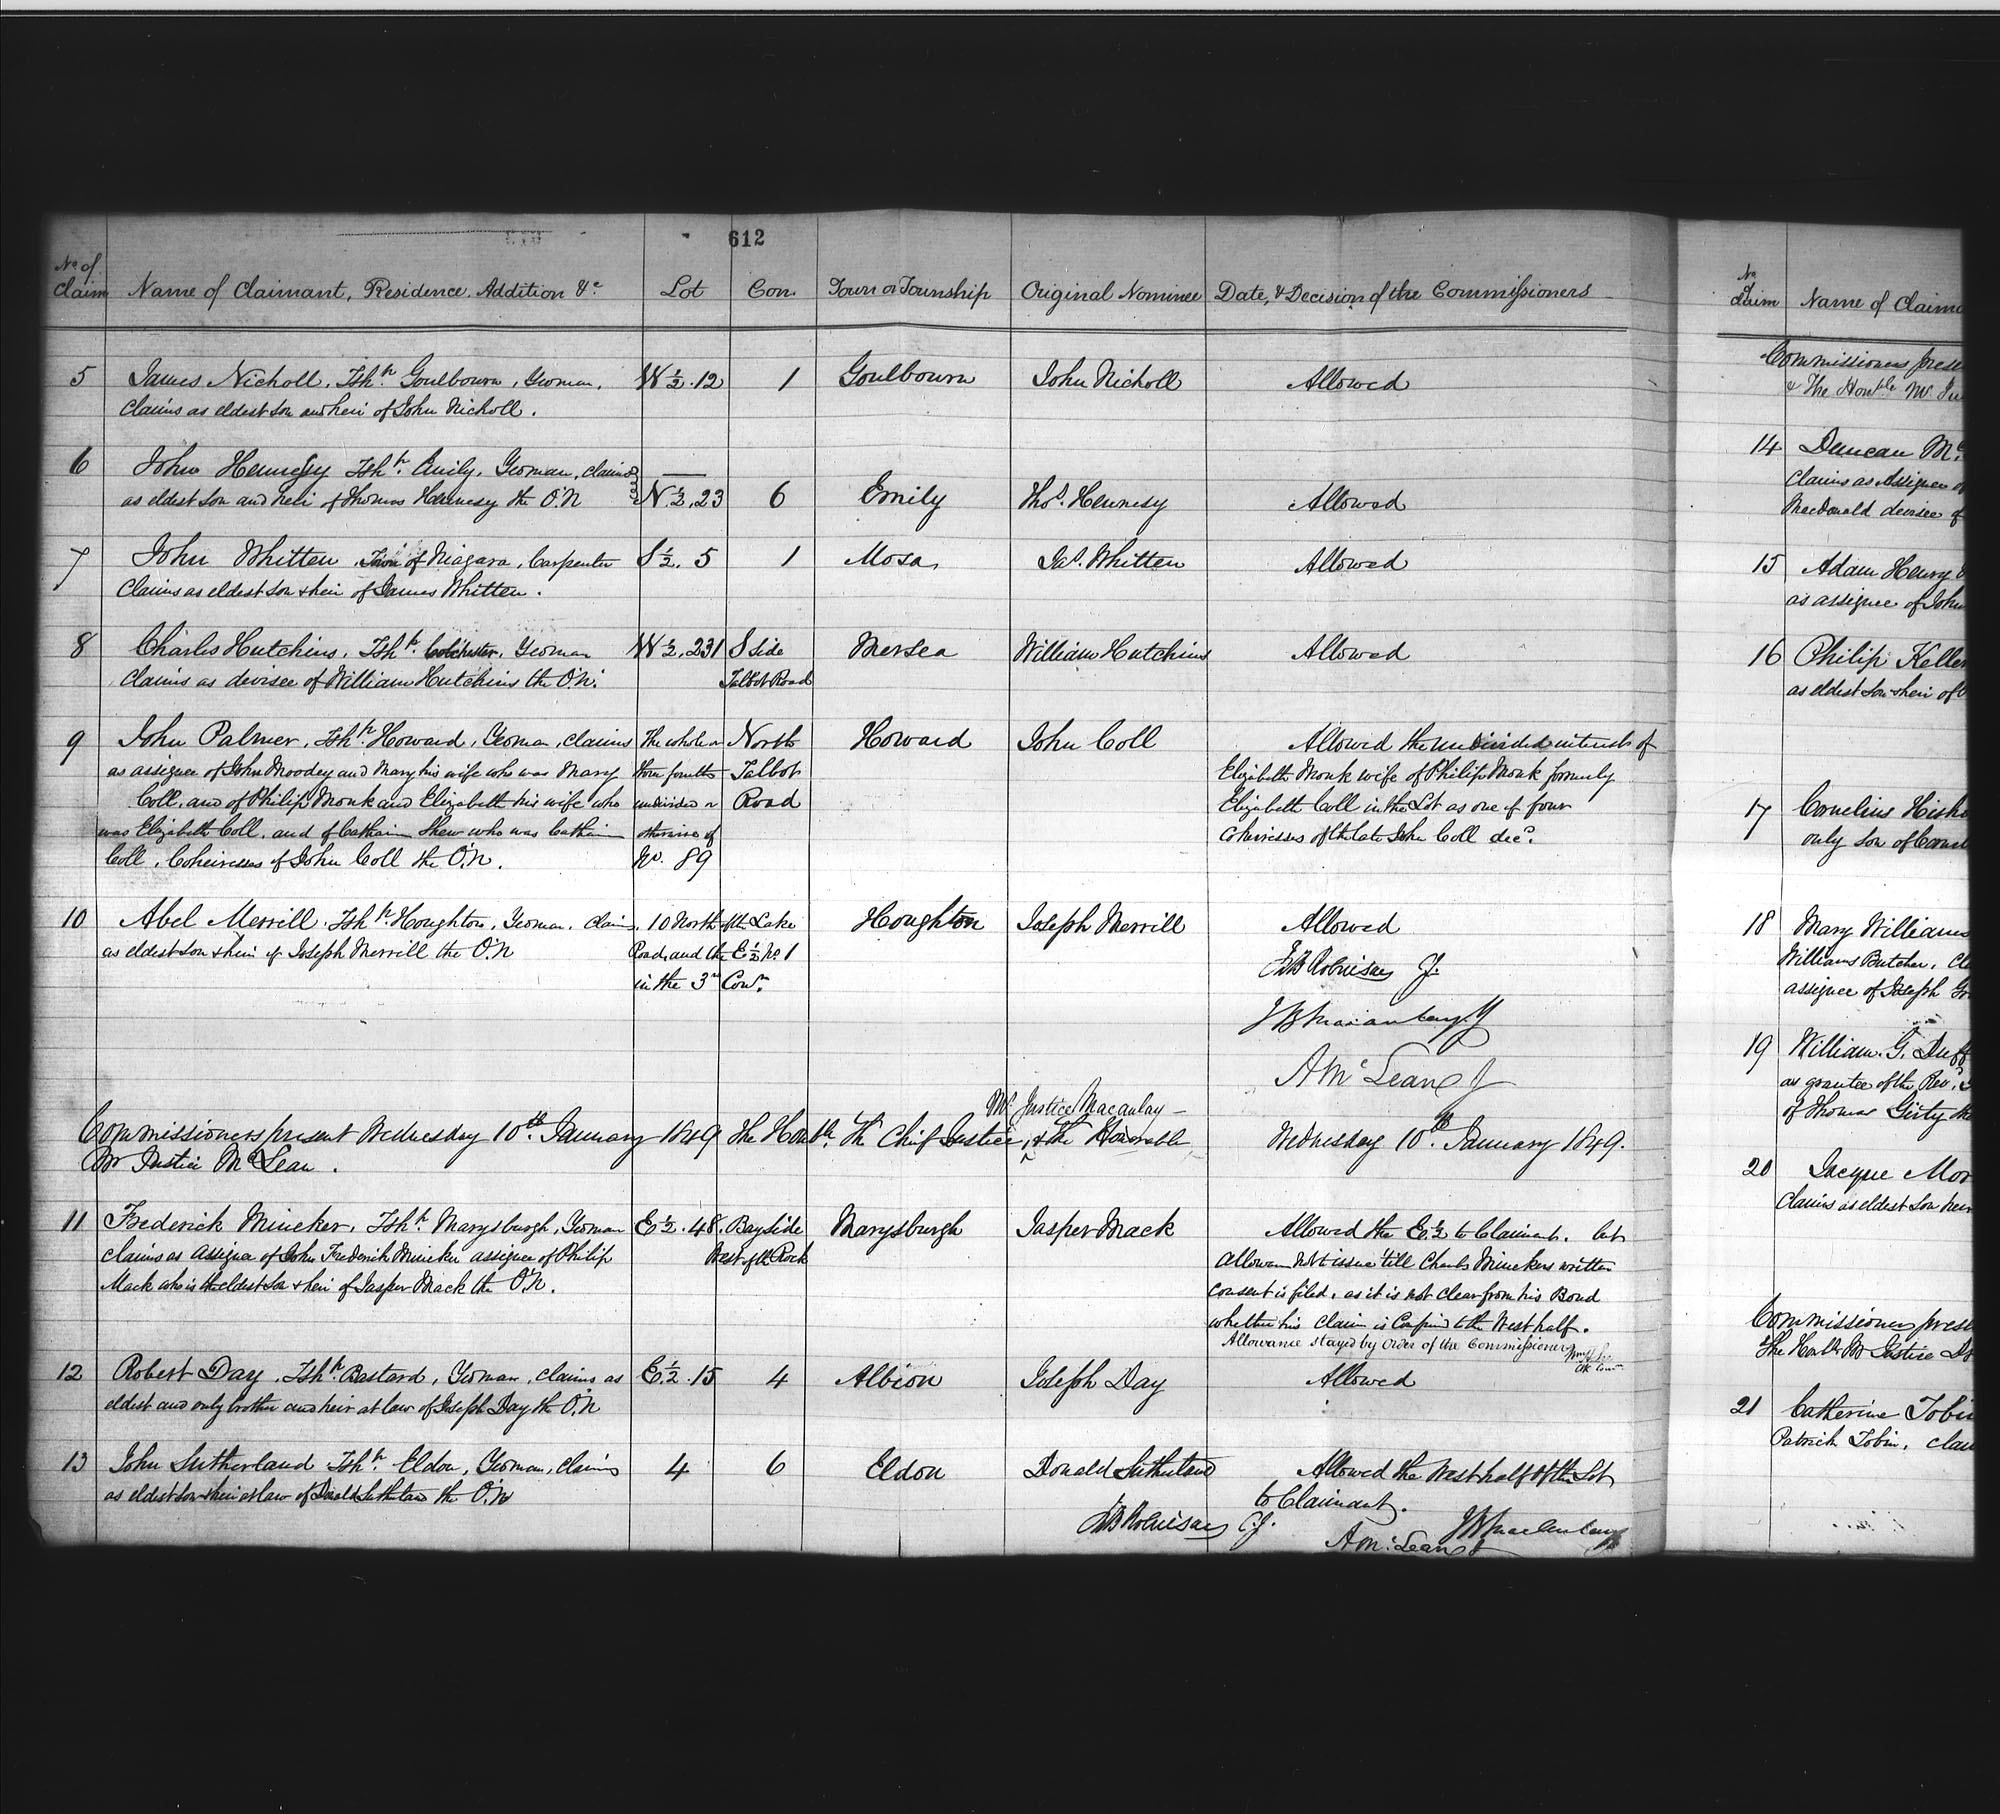 612
No. of Claim
Name of Claimant, Residence, Addition &c
Lot
Con.
Town or Township
Original Nominee
Date, & Decision of the Commissioners
5 James Nicholl, Tshp. Goulbourn, Yeoman, W ½ . 12 1 Goulbourn John Nicholl Allowed
Claims as eldest son and heir of John Nicholl.
6 John Hennessy Tshp. Emily, Yeoman, claims
as eldest son and heir of Thomas Hennesy the O.N N. ½ , 23 6 Emily Thos. Hennesy Allowed
7 John Whitten, Town of Niagara, Carpenter S ½ . 5 1 Mosa Jas. Whitten Allowed
Claims as eldest son & heir of James Whitten.
8 Charles Hutchins, Tshp. Colchester, Yeoman W ½ , 231 S Side Mersea William Hutchins Allowed
Claims as devisee of William Hutchins the O.N. Talbot Road
9 John Palmer, Tshp. Howard, Yeoman, claims The whole or North Howard John Coll Allowed the undivided interest of
as assignee of John Moodey and Mary his wife who was Mary three fourths Talbot Elizabeth Monk wife of Philip Monk formerly
Coll, and of Philip Monk and Elizabeth his wife who undivided or Road Elizabeth Coll in the Lot as one of four
was Elizabeth Coll, and of Catharin Shew who was Catharin otherwise of Coheiresses of the late John Coll decd.
Coll, Coheiresses of John Coll the O.N. No. 89
10 Abel Merrill, Tshp. Houghton, Yeoman, claims 10 North of the Lake Houghton Joseph Merrill Allowed
as eldest son & heir of Joseph Merrill the O.N Road, and the E ½ No. 1
in the 3rd Con.
JB Robinson CJ.
JB Macaulay J
A McLean J
Mr. Justice Macaulay
Commissioners present Wednesday 10th January 1849 The Honble. The Chief Justice, & the Honorable Wednesday 10th January 1849.
Mr Justice McLean.
11 Frederick Mineker, Tshp. Marysburgh, Yeoman E ½ . 48. Bay Side Marysburgh Jasper Mack Allowed the E ½ to Claimant, but
Claims as assignee of John Frederick Mineker assignee of Philip West of the Rock allowance not to issue 'till Charles Minekers written
Mack who is the eldest son & heir of Jasper Mack the O.N. consent is filed, as it is not clear from his Bond
whether his claim is Confined to the West half.
Allowance stayed by order of the Commissioners
12 Robert Day, Tshp. Bastard, Yeoman, claims as E. ½ . 15 4 Albion Joseph Day Allowed
eldest and only brother and heir at law of Joseph Day the O.N
13 John Sutherland Tshp. Eldon, Yeoman, claims 4 6 Eldon Donald Sutherland Allowed the West half of the Lot
as eldest son & heir at law of Donald Sutherland the O.N to Claimant.
JB Robinson C.J. JB Macaulay J
A McLean J
No Claim
Name of Claima
Commissioners prese
& The Honble. Mr. Ju
14 Duncan Mc
Claims as Assignee of
MacDonald devisee of
15 Adam Henry
as assignee of John
16 Philip Keller
as eldest son & heir of
17 Cornelius
only son of
18 Mary Williams
Williams Butcher, Cla
assignee of Joseph
19 William. G. Duff
as grantee of the Rev.
of Thomas Girty the
20 Jacque Mor
Claims as eldest son heir
Commissioners prese
The Honble Mr Justice
21 Catherine Tobin
Patrick Tobin, clai